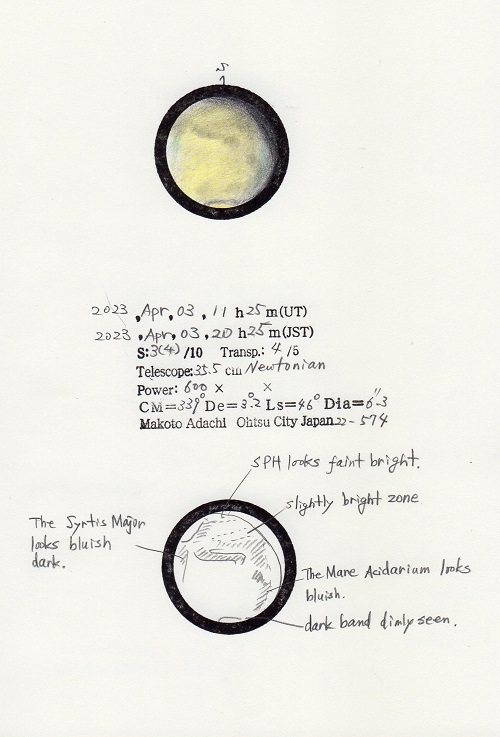 S
2023 , Apr, 03 , 11 h 25 m (UT)
2023 , Apr, 03 , 20 h 25 m (JST)
S: 3(4) /10 Transp.: 4 /5
Telescope: 35.5 cm Newtonian
Power: 600 × ×
CM=339° De=3.2° Ls=46° Dia=6".3
Makoto Adachi Ohtsu City Japan 22-574
SPH looks faint bright.
slightly bright zone
The Syrtis Major
looks bluish
dark.
The Mare Acidarium looks
bluish.
dark band dimly seen.